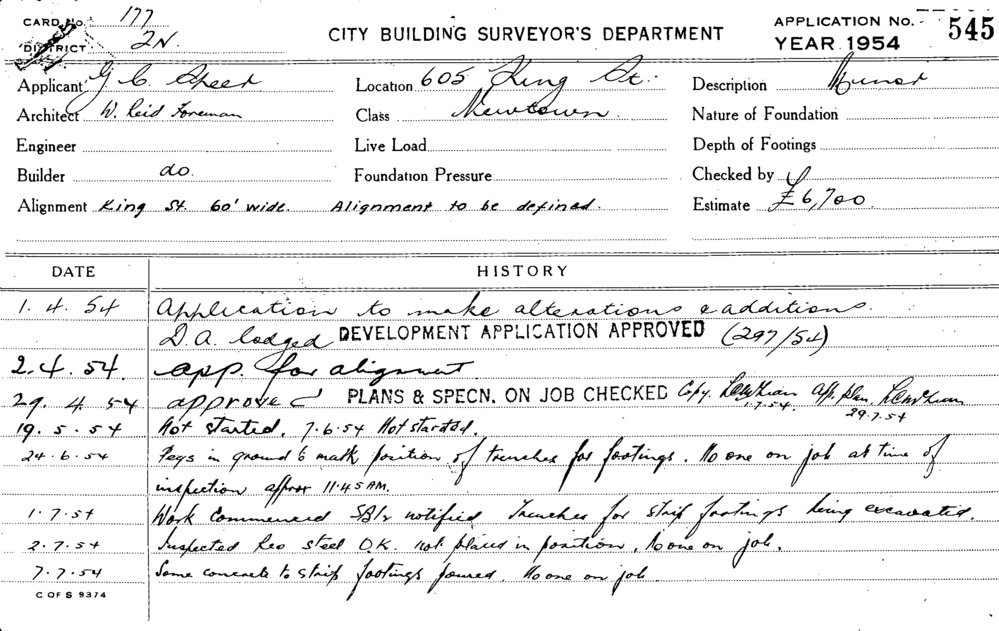 CARD No. 177
DISTRICT 2N.
CITY BUILDING SURVEYOR'S DEPARTMENT
APPLICATION No. 545
YEAR 1954
Applicant G. C. Speer Location 605 King St. Description
Architect W. Reid Foreman Class Newtown Nature of Foundation
Engineer Live Load Depth of Footings
Builder do. Foundation Pressure Checked by
Alignment King St. 60' wide. Alignment to be defined. Estimate £6,700.
DATE HISTORY
1. 4. 54 Application to make alterations & additions.
D.A. lodged DEVELOPMENT APPLICATION APPROVED (297/54)
2. 4. 54. app. for alignment
29. 4. 54 approved PLANS & SPECN. ON JOB CHECKED Copy. 1.7.54. App. plan. 29.7.54
19. 5. 54 Not started. 7.6.54 Not started.
24.6.54 Pegs in ground to mark position of trenches for footings. No one on job at time of
inspection approx 11.45 AM.
1.7.54 Work commenced notified Trenches for strip footings being excavated.
2.7.54 Inspected Reo steel O.K. not placed in position. No one on job.
7.7.54 Some concrete to strip footings poured. No one on job.
C OF S 9374